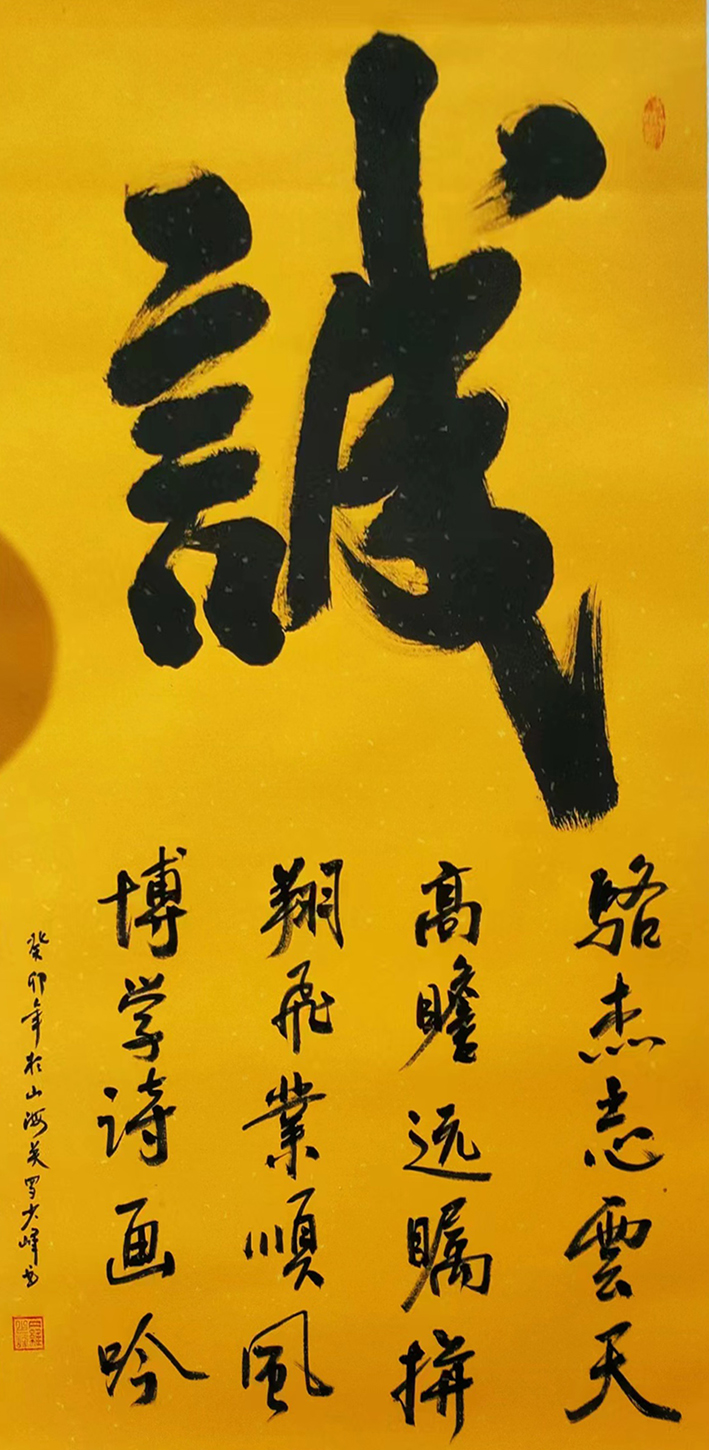 誠
駱杰志雲天
高瞻远瞩拼
翔飛業順風
博学诗画吟
癸卯年於山海关罗大峰书